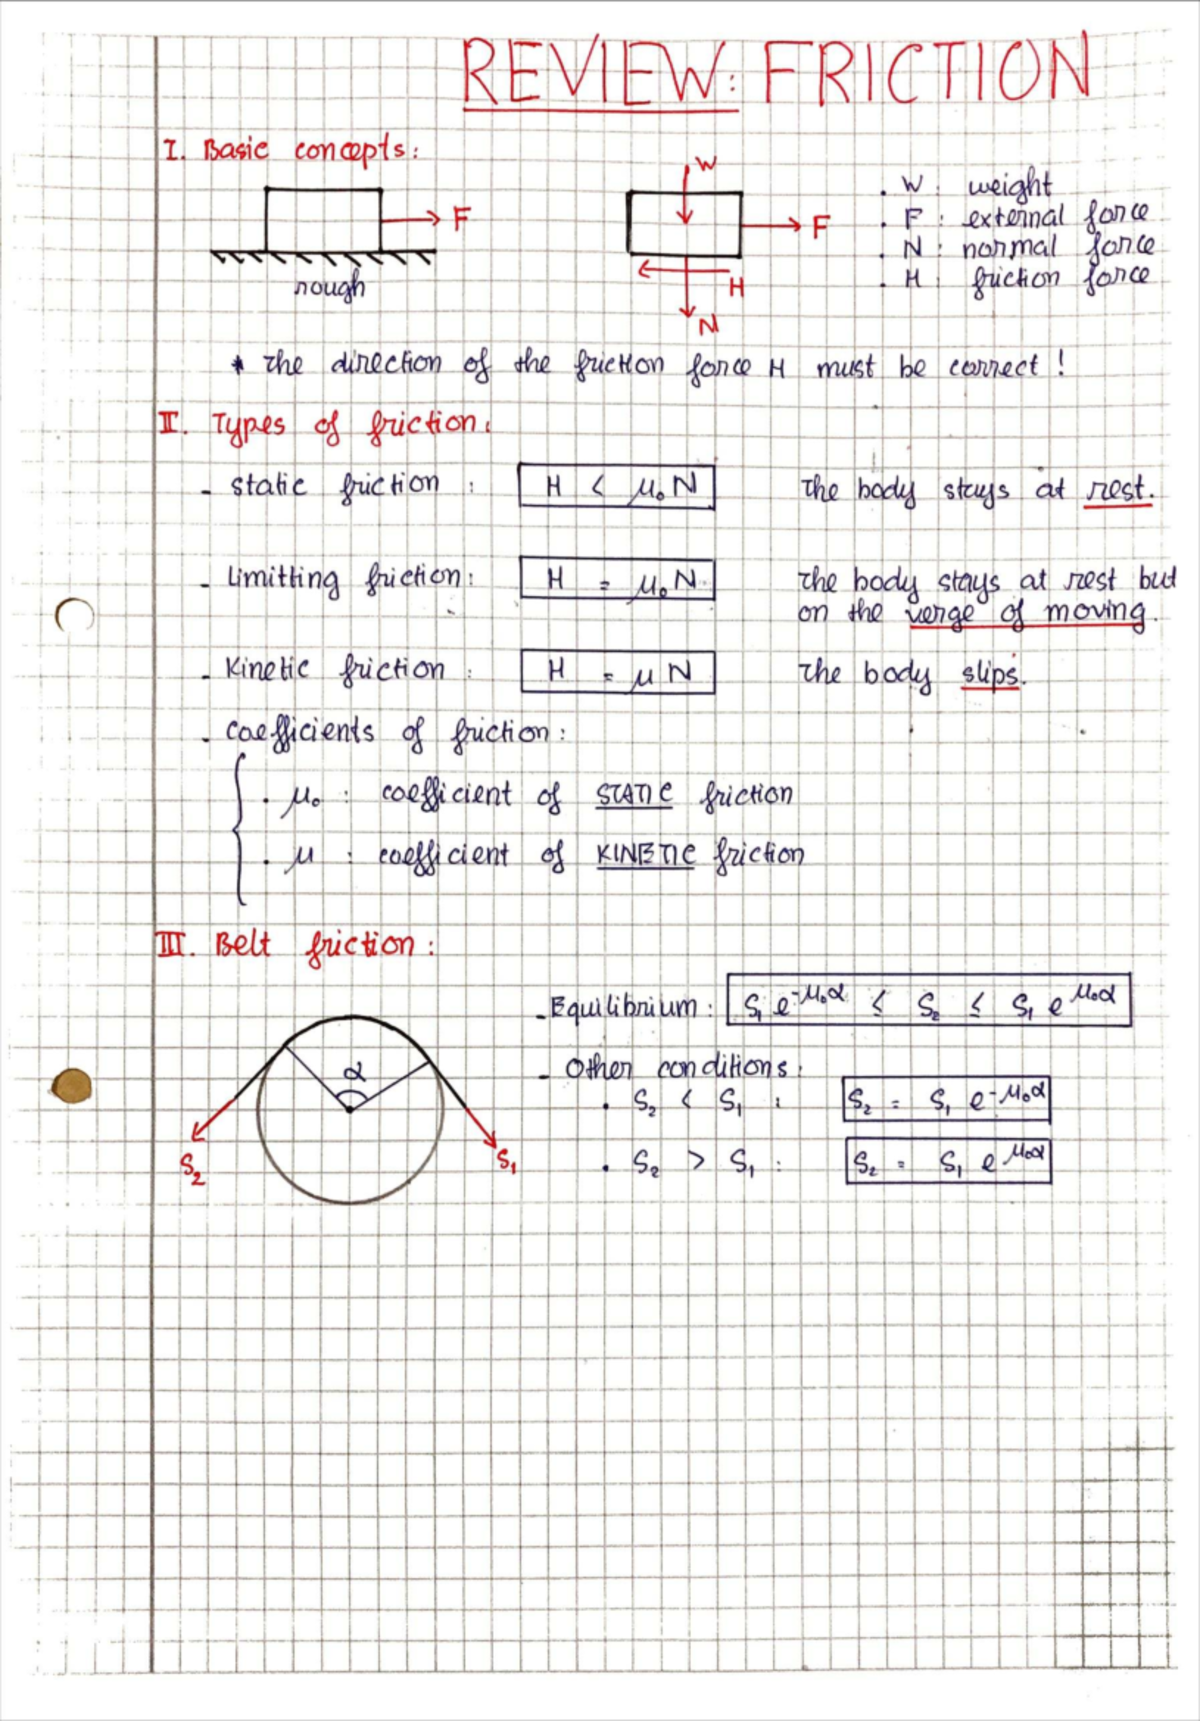 REVIEW: FRICTION
I. Basic concepts:
F
rough
W
F
H
N
. W : weight
. F : external force
. N : normal force
. H : friction force
* The direction of the friction force H must be correct !
II. Types of friction:
- static friction : H < μ₀N The body stays at rest.
- Limitting friction: H = μ₀N The body stays at rest but
on the verge of moving.
- Kinetic friction : H = μN The body slips.
- coefficients of friction:
. μ₀ : coefficient of STATIC friction
. μ : coefficient of KINETIC friction
III. Belt friction:
α
S₂
S₁
- Equilibrium: S₁ e^-μ₀α ≤ S₂ ≤ S₁ e^μ₀α
- Other conditions:
. S₂ < S₁ : S₂ = S₁ e^-μ₀α
. S₂ > S₁ : S₂ = S₁ e^μ₀α